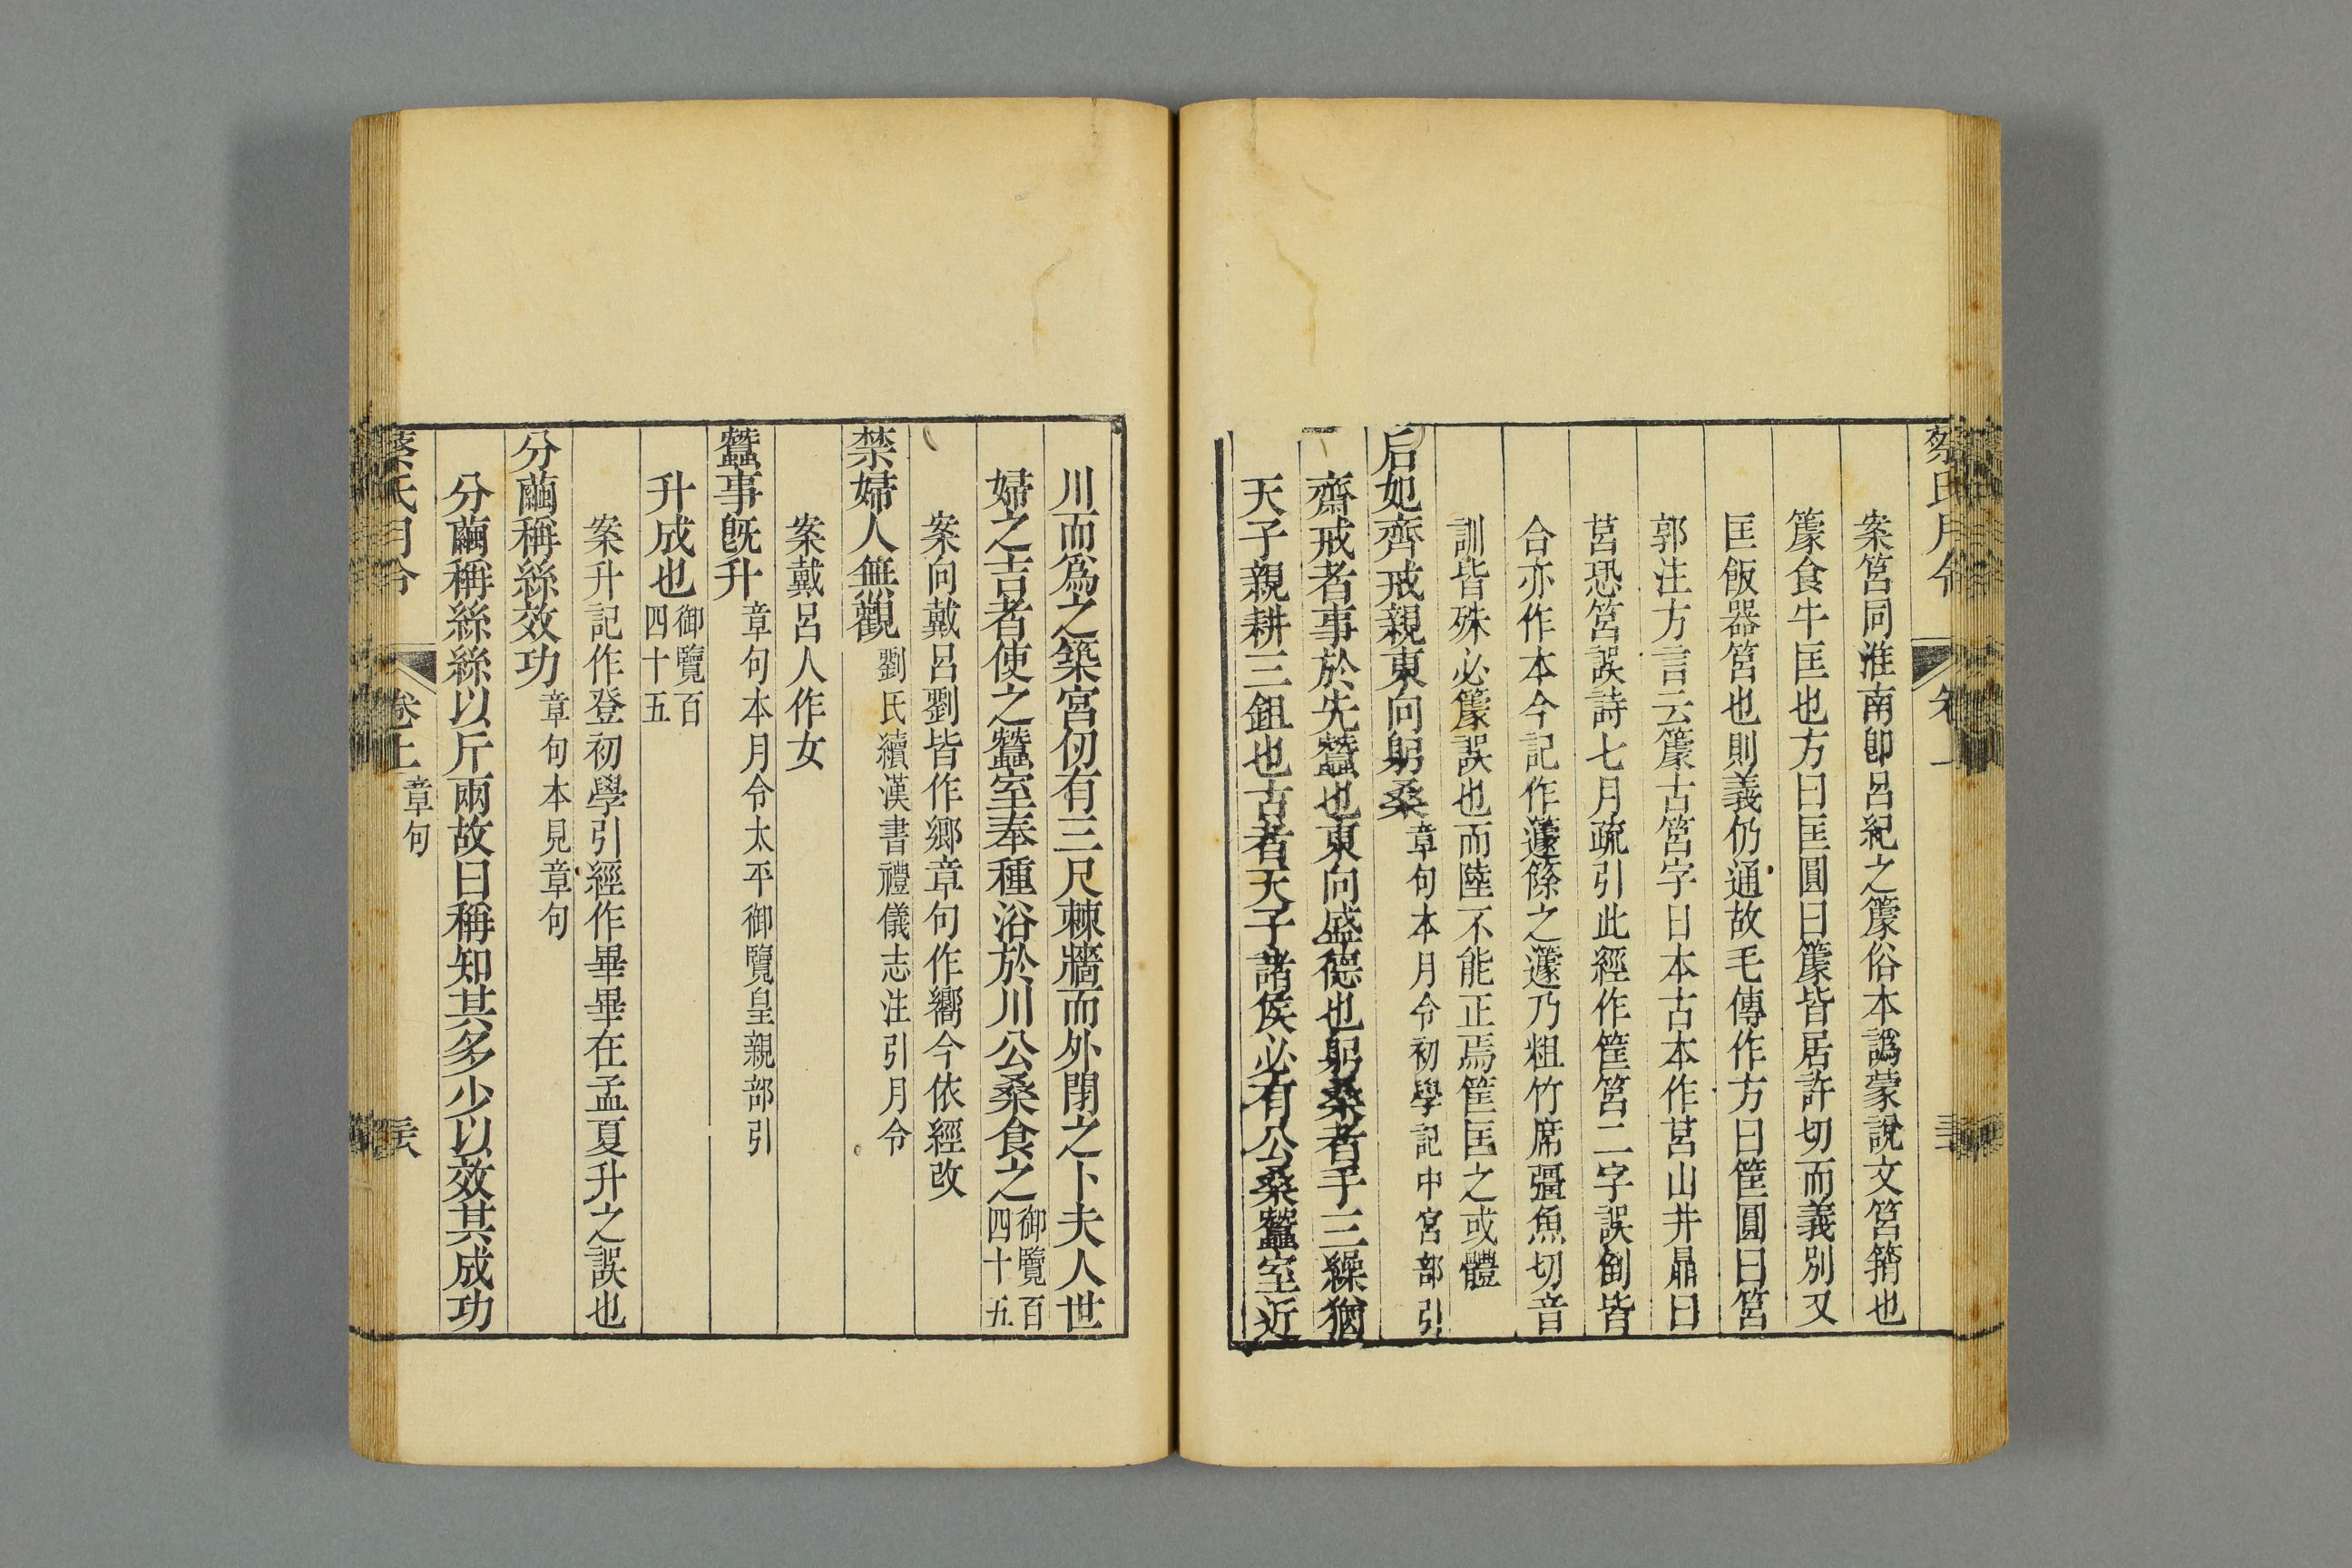 蔡氏月令
案筥同淮南卽呂紀之䉶俗本譌蒙說文筥䈰也
䉶食牛匡也方曰匡圓曰䉶皆居許切而義別又
匡飯器筥也則義仍通故毛傳作方曰筐圓曰筥
郭注方言云䉶古筥字日本古本作莒山井鼎曰
莒恐筥誤詩七月疏引此經作筐筥二字誤倒皆
合亦作本今記作蘧篨之蘧乃粗竹席彊魚切音
訓皆殊必䉶誤也而陸不能正焉筐匡之或體
后妃齊戒親東向躬桑章句本月令初學記中宮部引
齋戒者事於先蠶也東向盛德也躬桑者手三繰猶
天子親耕三鉏也古者天子諸侯必有公桑蠶室近
川而爲之築宮仞有三尺棘牆而外閉之卜夫人世
婦之吉者使之蠶室奉種浴於川公桑食之御覽百四十五
案向戴呂劉皆作鄉章句作嚮今依經改
禁婦人無觀劉氏續漢書禮儀志注引月令
案戴呂人作女
蠶事旣升章句本月令太平御覽皇親部引
升成也御覽百四十五
案升記作登初學引經作畢畢在孟夏升之誤也
分繭稱絲效功章句本見章句
分繭稱絲絲以斤兩故曰稱知其多少以效其成功
蔡氏月令 卷上 章句